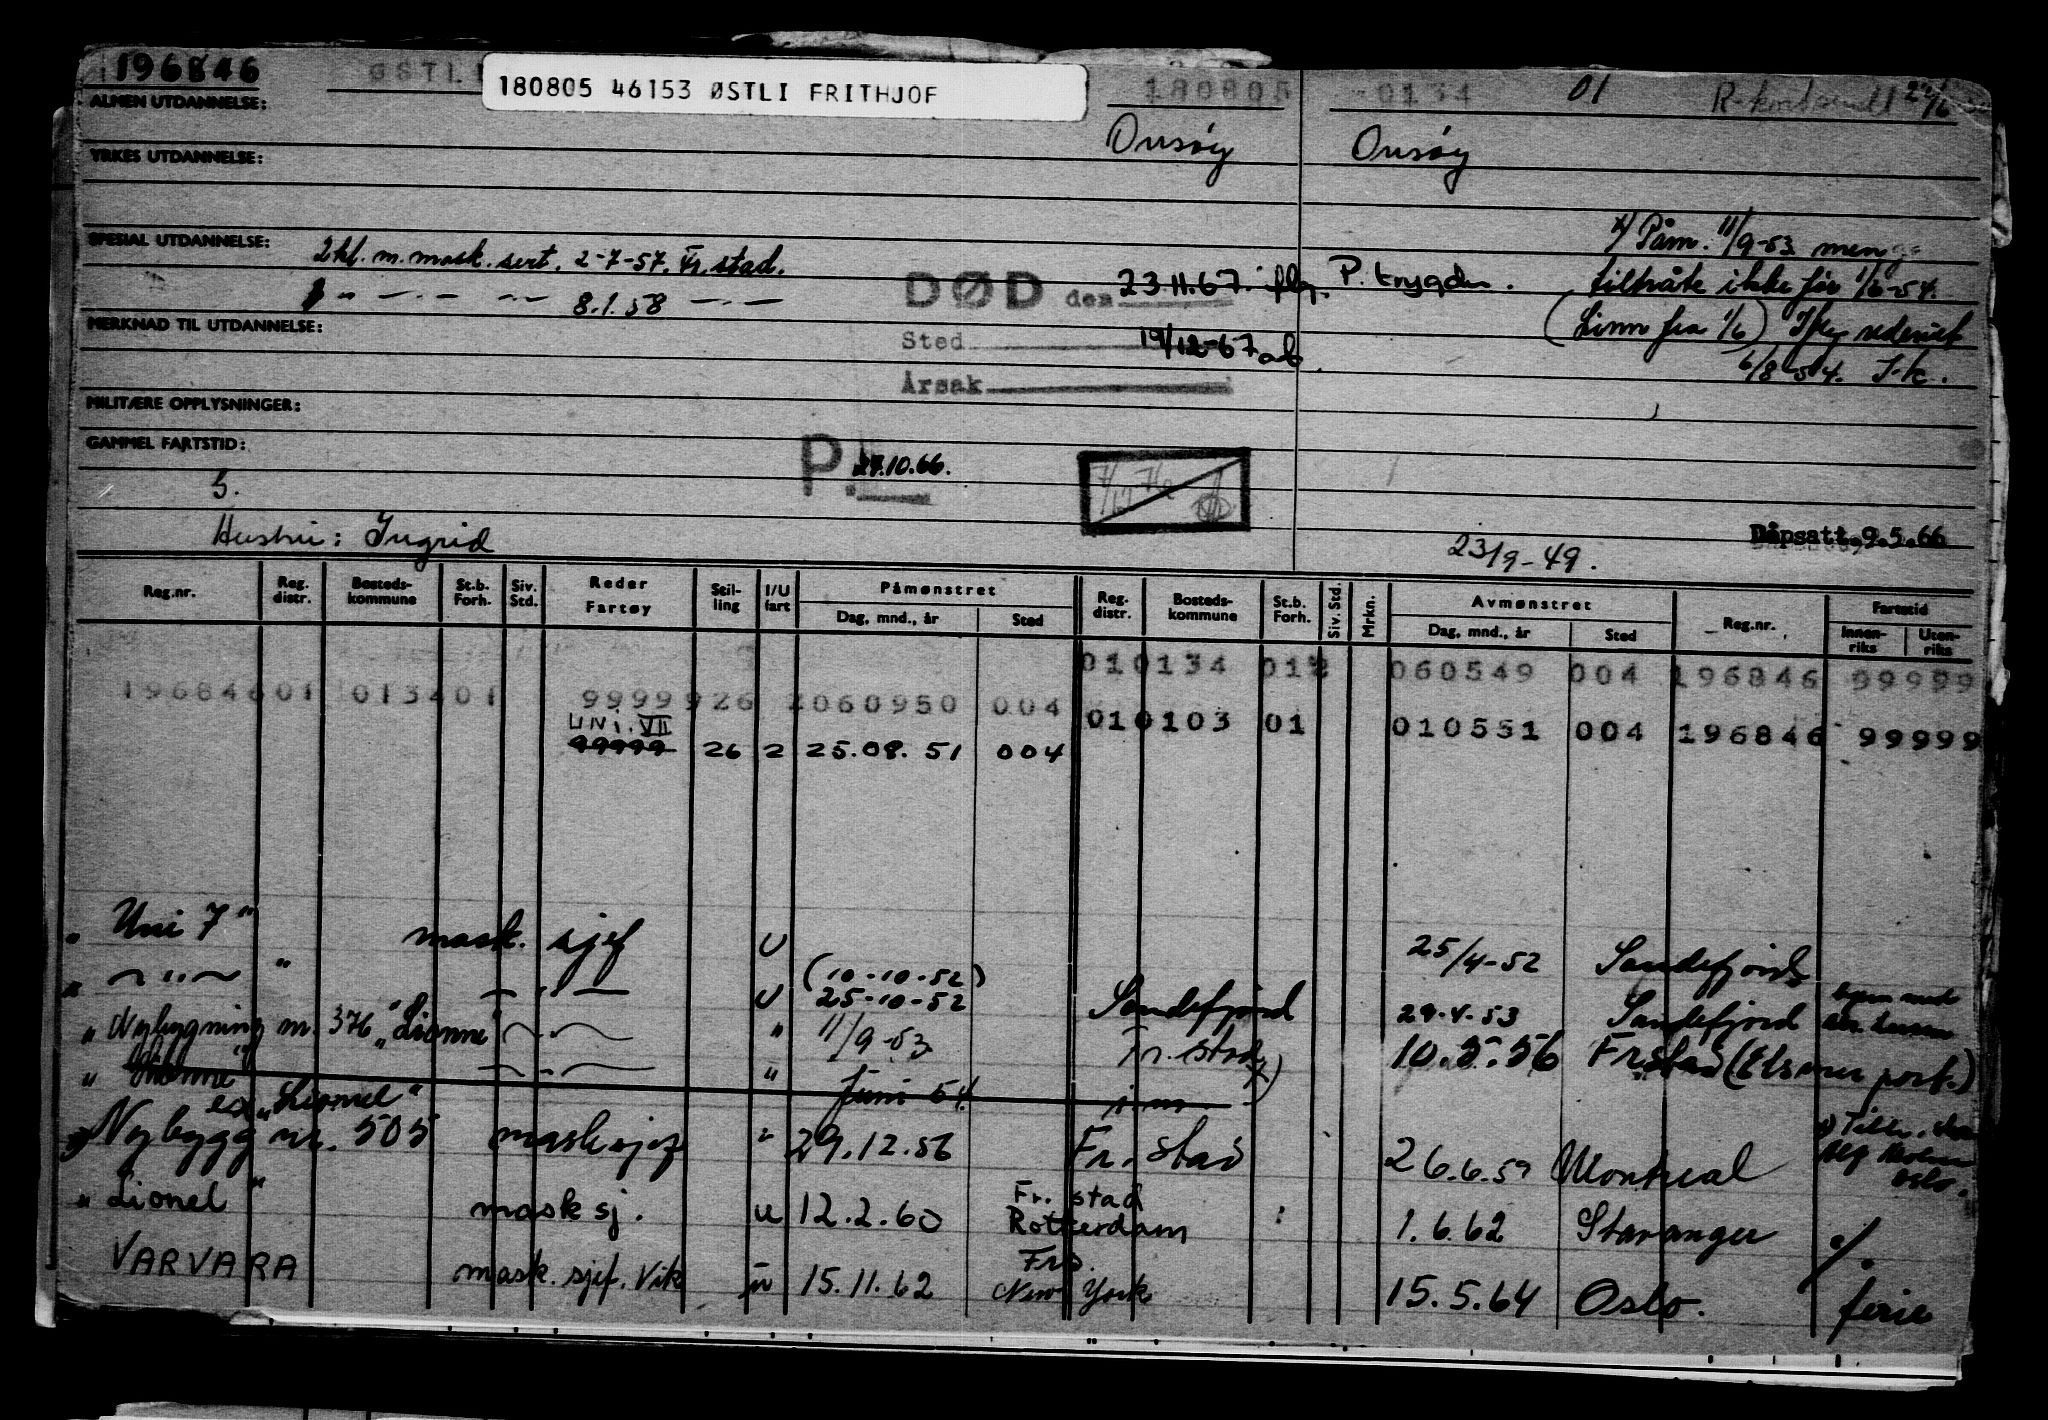 196846 ØSTLI 180805 46153 ØSTLI FRITHJOF 180805 0134 01
ALMEN UTDANNELSE:
Onsøy Onsøy
YRKES UTDANNELSE:
x) Påm. 11/9-53 men
SPESIAL UTDANNELSE: 2 kl. m. mask. sert. 2-7-57. Fr.stad.
DØD den 23.11.67. iflg. P. trygden. tiltrådte ikke før 1/6-54.
8.1.58
MERKNAD TIL UTDANNELSE:
Sted 19/12-67 (Linn fra 1/6) Iflg rederiet
6/8-54.
Årsak
MILITÆRE OPPLYSNINGER:
GAMMEL FARTSTID:
P. 27.10.66.
5.
Hustru: Ingrid
23/9-49. Påpsatt.9.5.66
Reg.nr. Reg. distr. Bosteds-kommune St.b. Forh. Siv. Std. Reder Fartøy Stil-ling I/U fart Påmønstret Dag, mnd., år Sted Reg. distr. Bosteds-kommune St.b. Forh. Siv. Std. Mrkn. Avmønstret Dag, mnd., år Sted Reg.nr. Fartstid Innen-riks Uten-riks
010134 01 060549 004 196846 99999
196846 01 0134 01 99999 26 2 060950 004
UNI. VII 010103 01 010551 004 196846 99999
99999 26 2 25.08.51 004
"Uni 7" mask. sjef U 25/4-52 Sandefjord
" — " — " — " — U (10-10-52) 25-10-52 Sandefjord 29-4-53 Sandefjord
" Nybygning nr. 376 "Lionne" — " — " 11/9-53 Fr.stad x) 10.5.56 Fr.stad
" Lionne" — " — " Juni 54
ex "Lionel"
Nybygg nr. 505 masksjef " 29.12.56 Fr. stad 26.6.59 Montreal
" Lionel " mask sj. u 12.2.60 Fr. stad Rotterdam 1.6.62 Stavanger
VARVARA mask. sjef. Vik u 15.11.62 Frs. New York 15.5.64 Oslo. ferie